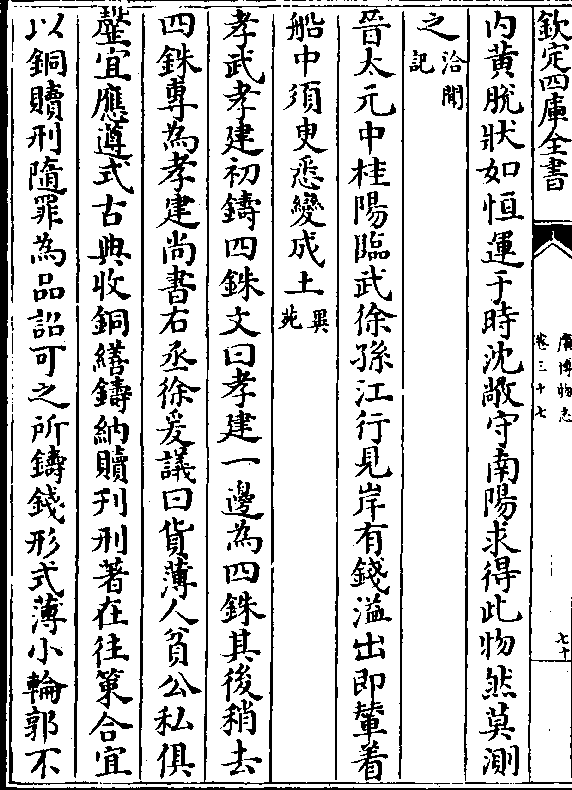 欽定四庫全書
廣博物志
卷三十七
七十
内黄脫狀如恒運于時沈敞守南陽求得此物然莫測
之洽聞記
晉太元中桂陽臨武徐孫江行見岸有錢溢出即輦着
船中須臾悉變成土異苑
孝武孝建初鑄四銖文曰孝建一邊為四銖其後稍去
四銖專為孝建尚書右丞徐爰議曰貨薄人貧公私俱
罄宜應遵式古典收銅繕鑄納贖刋刑著在往策合宜
以銅贖刑隨罪為品詔可之所鑄錢形式薄小輪郭不